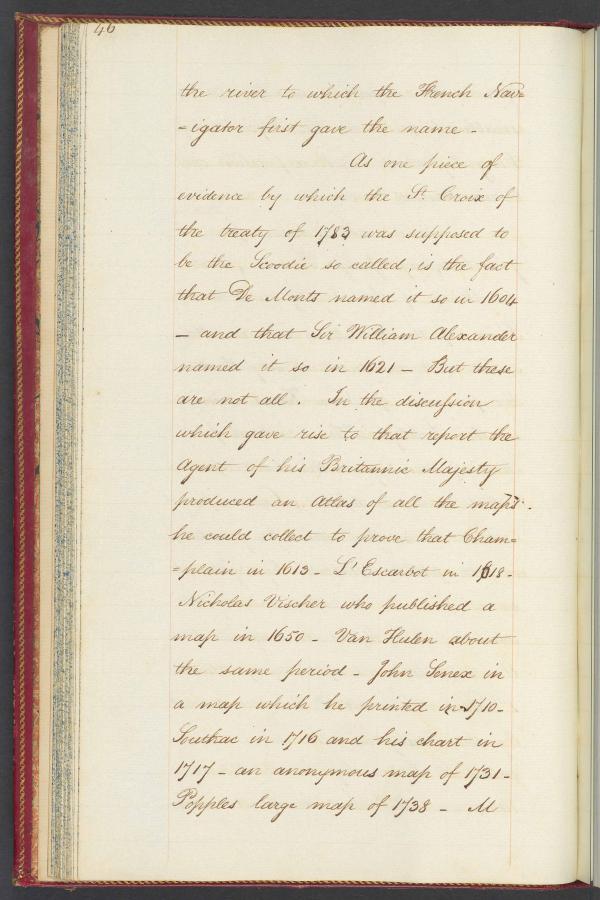 46
the river to which the French Nav=
=igator first gave the name -
As one piece of
evidence by which the St. Croix of
the treaty of 1783 was supposed to
be the Scoodic so called, is the fact
that De Monts named it so in 1604
- and that Sir William Alexander
named it so in 1621 - But these
are not all. In the discussion
which gave rise to that report the
Agent of his Britannic Majesty
produced an Atlas of all the maps.
he could collect to prove that Cham=
=plain in 1613 - L'Escarbot in 1618 -
Nicholas Vischer who published a
map in 1650 - Van Hulen about
the same period - John Senex in
a map which he printed in 1710 -
Southac in 1716 and his chart in
1717 - an anonymous map of 1731 -
Popples large map of 1738 - M